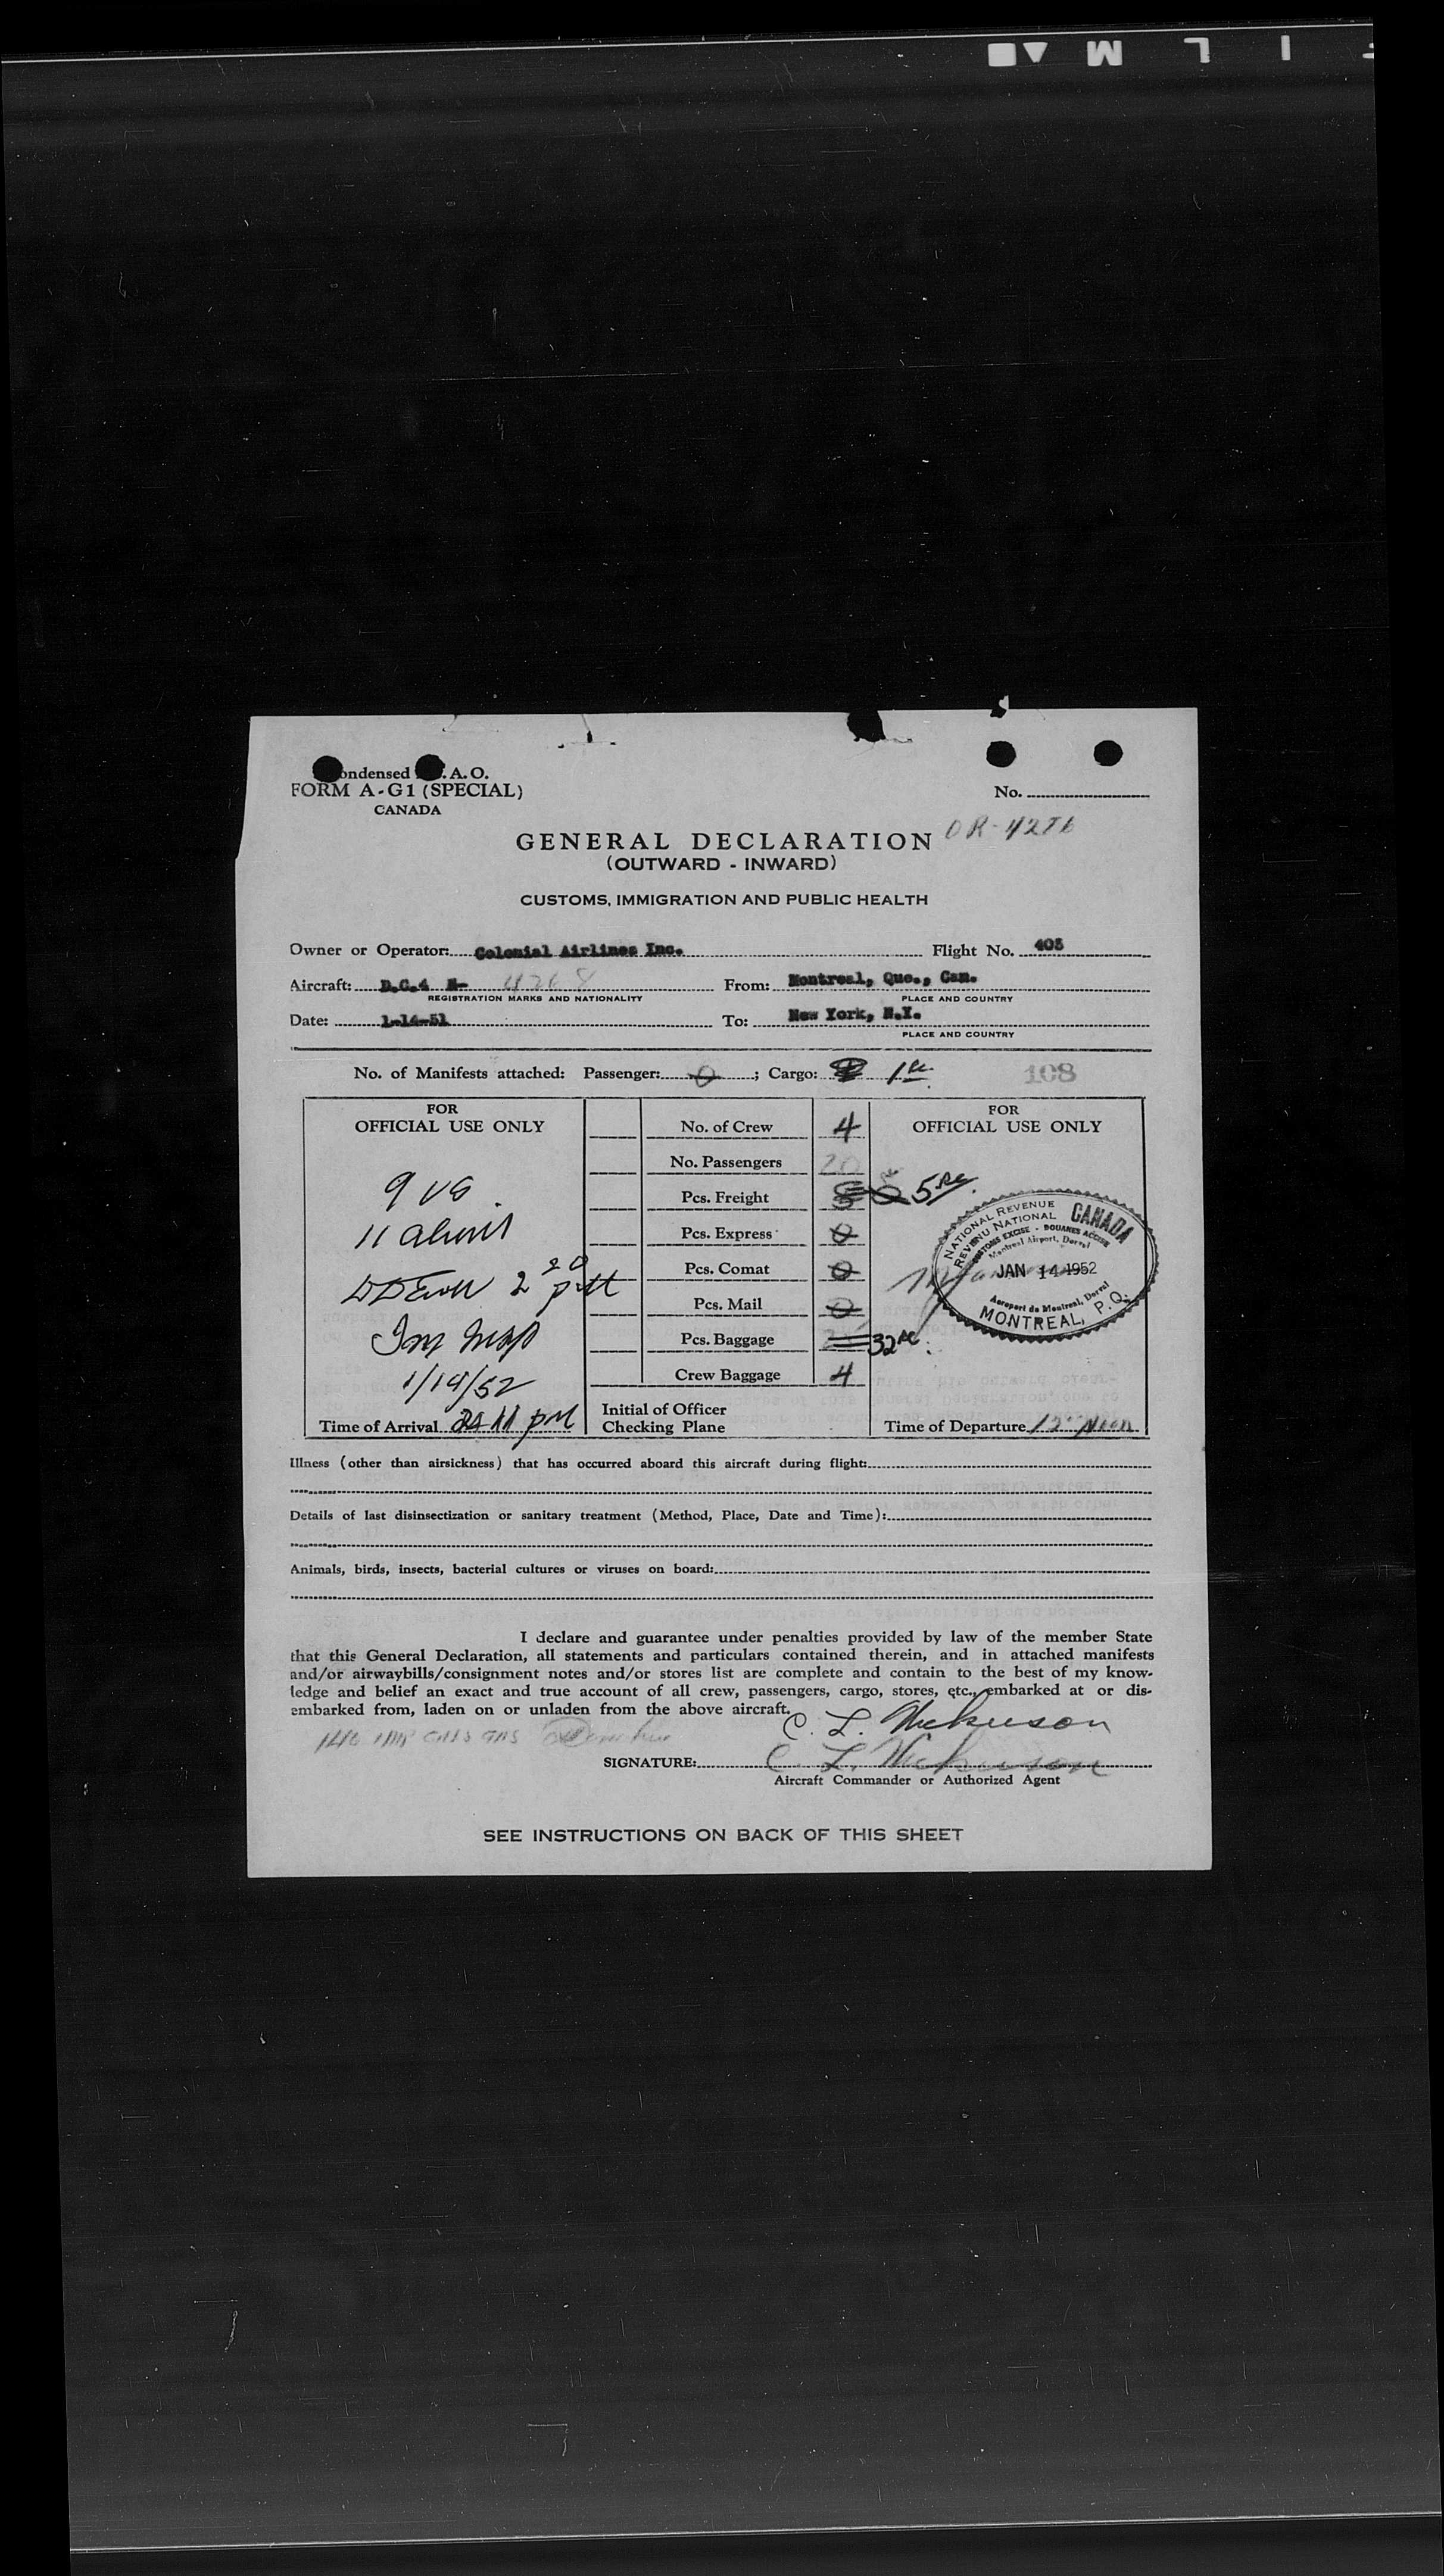 Condensed I.C.A.O.
FORM A-G1 (SPECIAL)
CANADA
No.
GENERAL DECLARATION
(OUTWARD - INWARD)
CUSTOMS, IMMIGRATION AND PUBLIC HEALTH
Owner or Operator: Colonial Airlines Inc. Flight No. 403
Aircraft: D.C.4 N- 4268 From: Montreal, Que., Can.
REGISTRATION MARKS AND NATIONALITY PLACE AND COUNTRY
Date: 1-14-51 To: New York, N.Y.
PLACE AND COUNTRY
No. of Manifests attached: Passenger: 0 ; Cargo: 1
108
FOR
OFFICIAL USE ONLY
9 US
11 aliens
Imm Insp
1/14/52
Time of Arrival pM
No. of Crew 4
No. Passengers 20
Pcs. Freight 5
Pcs. Express 0
Pcs. Comat 0
Pcs. Mail 0
Pcs. Baggage 32
Crew Baggage 4
Initial of Officer
Checking Plane
FOR
OFFICIAL USE ONLY
NATIONAL REVENUE
REVENU NATIONAL
CANADA
CUSTOMS EXCISE - DOUANES ACCISE
Montreal Airport, Dorval
JAN 14 1952
Aeroport de Montreal, Dorval
MONTREAL, P.Q.
Time of Departure 12 Noon
Illness (other than airsickness) that has occurred aboard this aircraft during flight:
Details of last disinsectization or sanitary treatment (Method, Place, Date and Time):
Animals, birds, insects, bacterial cultures or viruses on board:
I declare and guarantee under penalties provided by law of the member State
that this General Declaration, all statements and particulars contained therein, and in attached manifests
and/or airwaybills/consignment notes and/or stores list are complete and contain to the best of my know-
ledge and belief an exact and true account of all crew, passengers, cargo, stores, etc., embarked at or dis-
embarked from, laden on or unladen from the above aircraft.
C. L. Nickerson
SIGNATURE: C. L. Nickerson
Aircraft Commander or Authorized Agent
SEE INSTRUCTIONS ON BACK OF THIS SHEET